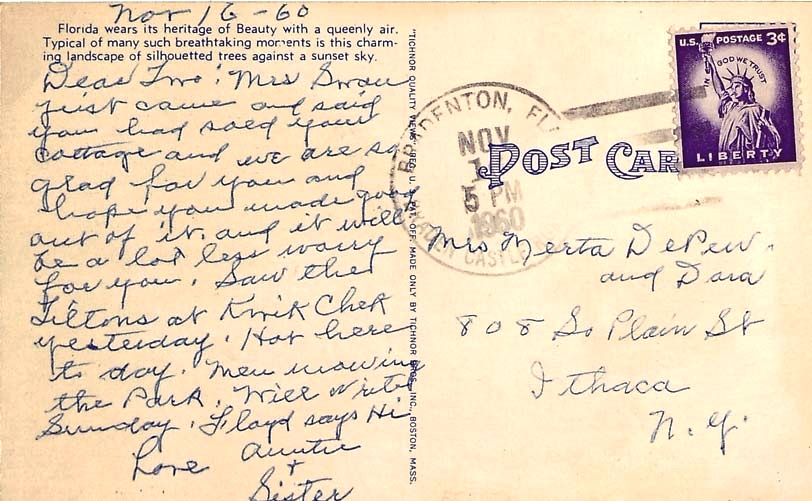 Nov 16-60
Florida wears its heritage of Beauty with a queenly air.
Typical of many such breathtaking moments is this charm-
ing landscape of silhouetted trees against a sunset sky.
Dear Two: Mrs Swan
just came and said
you had sold your
cottage and we are so
glad for you and
hope you made good
out of it, and it will
be a lot less worry
for you. Saw the
Tiltons at Kwik Chek
yesterday. Hot here
to day. Men mowing
the Park. Will write
Sunday. Floyd says Hi
Love Auntie
+
Sister
"TICHNOR QUALITY VIEWS," REG. U. S. PAT. OFF. MADE ONLY BY TICHNOR BROS., INC., BOSTON, MASS.
BRADENTON, FLA
NOV
5 PM
1960
CASTLE
POST CARD
U.S. POSTAGE 3¢
IN GOD WE TRUST
LIBERTY
Mrs Nerta DePew.
and Dora
808 So Plain St
Ithaca
N.Y.